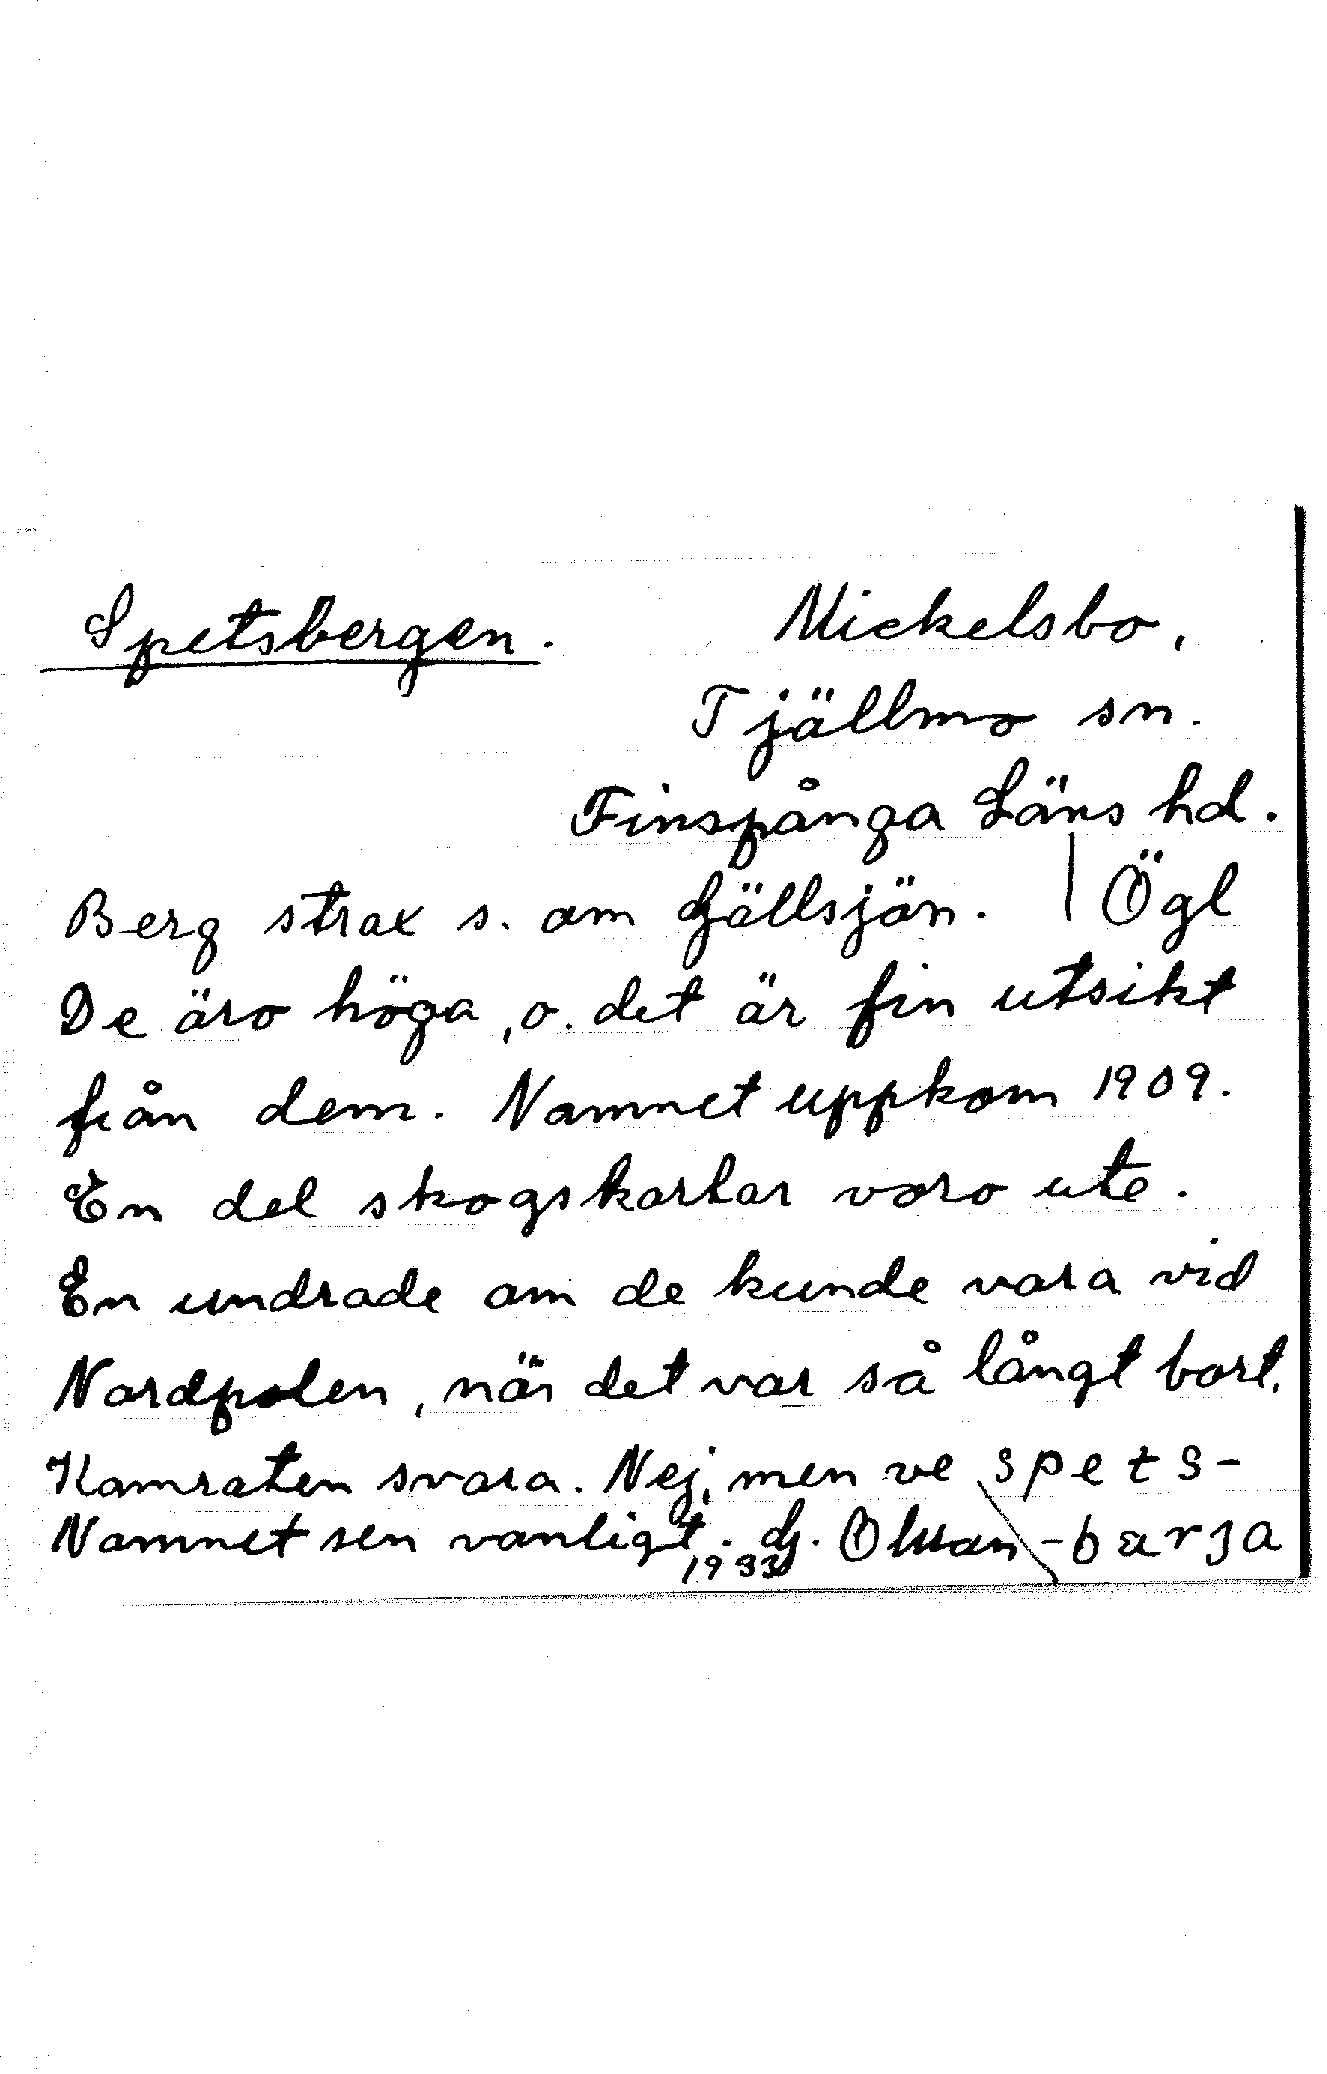 Spetsbergen. Mickelsbo,
Tjällmo sn.
Finspånga Läns hd.
Berg strax s. om Gällsjön. | Ögl
De äro höga, o. det är fin utsikt
från dem. Namnet uppkom 1909.
En del skogskarlar voro ute.
En undrade om de kunde vara vid
Nordpolen, när det var så långt bort.
Kamraten svara. Nej, men ve spets-
-barja
Namnet sen vanligt. G. Olsson
1933